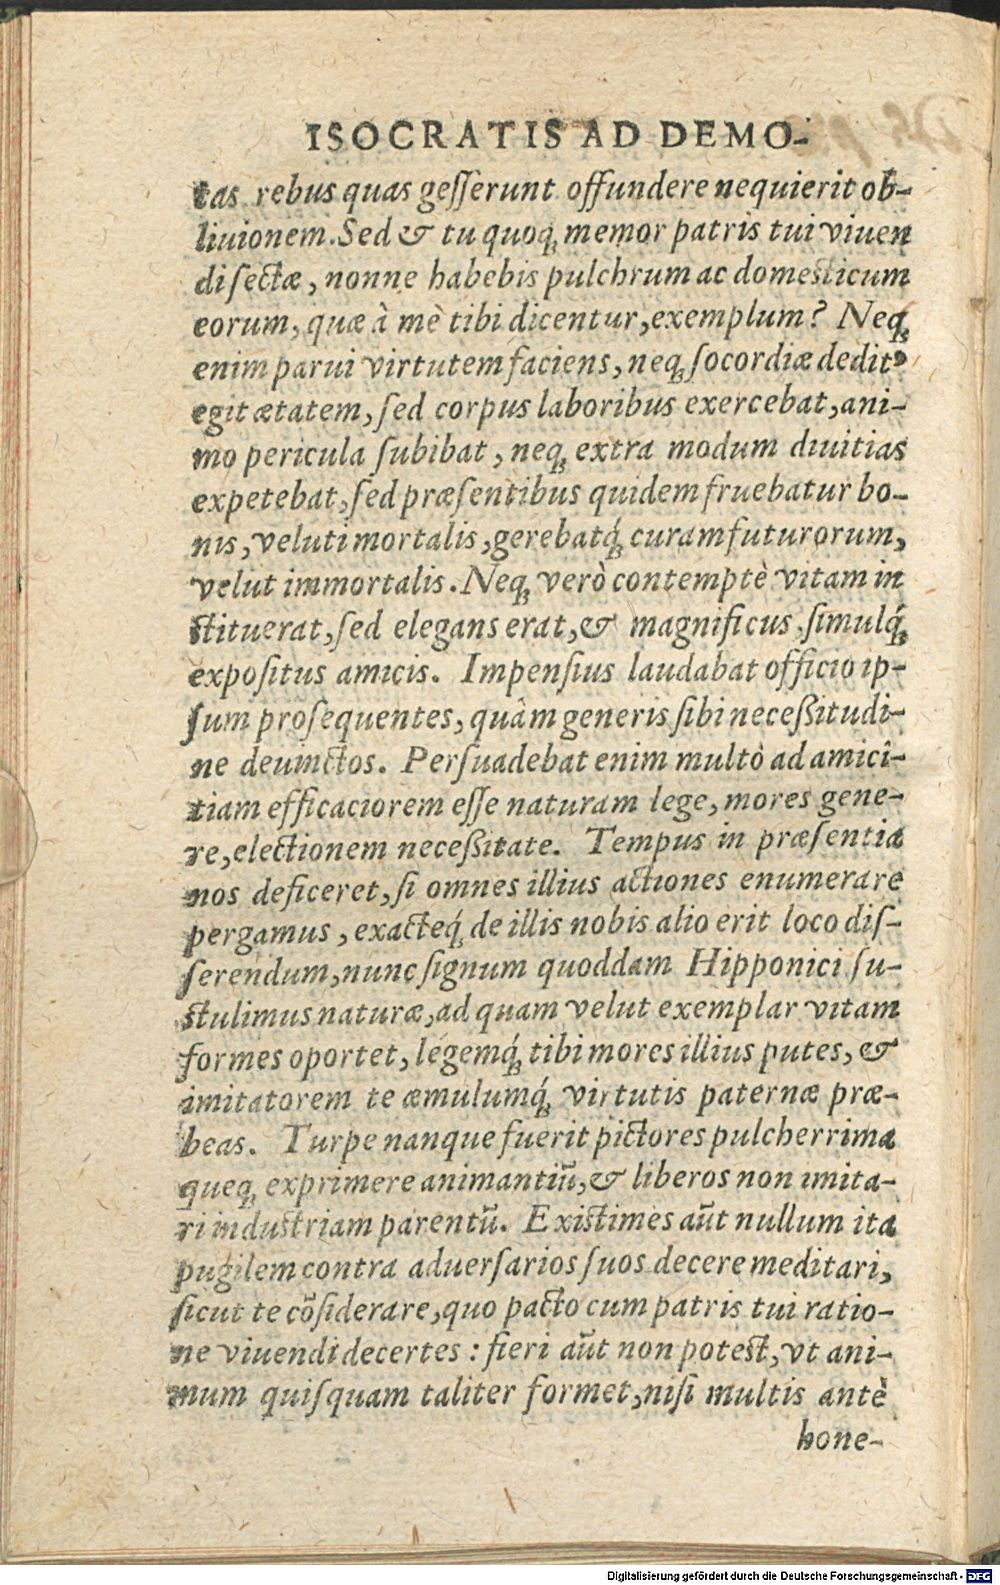 ISOCRATIS AD DEMO-
tas rebus quas geſſerunt offundere nequierit ob-
liuionem. Sed & tu quoq; memor patris tui viuen
di ſectæ, nonne habebis pulchrum ac domesticum
eorum, quæ à mè tibi dicentur, exemplum? Neq;
enim parui virtutem faciens, neq; ſocordiæ dedit9
egit ætatem, ſed corpus laboribus exercebat, ani-
mo pericula ſubibat, neq; extra modum diuitias
expetebat, ſed præſentibus quidem fruebatur bo-
nis, veluti mortalis, gerebatq́; curam futurorum,
velut immortalis. Neq; verò contemptè vitam in
ſtituerat, ſed elegans erat, & magnificus, ſimulq́;
expoſitus amicis. Impenſius laudabat officio ip-
ſum proſequentes, quàm generis ſibi neceßitudi-
ne deuinctos. Perſuadebat enim multò ad amici-
tiam efficaciorem eſſe naturam lege, mores gene-
re, electionem neceßitate. Tempus in præſentia
nos deficeret, ſi omnes illius actiones enumerare
pergamus, exacteq́; de illis nobis alio erit loco diſ-
ſerendum, nunc ſignum quoddam Hipponici ſu-
ſtulimus naturæ, ad quam velut exemplar vitam
formes oportet, legemq́; tibi mores illius putes, &
imitatorem te æmulumq́; virtutis paternæ præ-
beas. Turpe nanque fuerit pictores pulcherrima
queq; exprimere animantiū, & liberos non imita-
ri induſtriam parentū. Exiſtimes aūt nullum ita
pugilem contra aduerſarios ſuos decere meditari,
ſicut te cōſiderare, quo pacto cum patris tui ratio-
ne viuendi decertes: fieri aūt non poteſt, vt ani-
mum quiſquam taliter formet, niſi multis antè
hone-
Digitalisierung gefördert durch die Deutsche Forschungsgemeinschaft - DFG